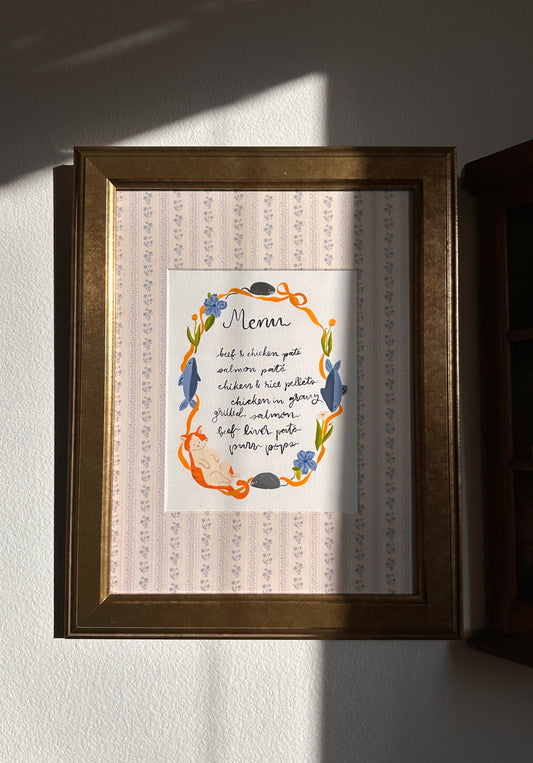 Menu
beef & chicken paté
salmon paté
chiken & rice pellets
chicken in gravy
grilled salmon
beef liver pate
purr pops